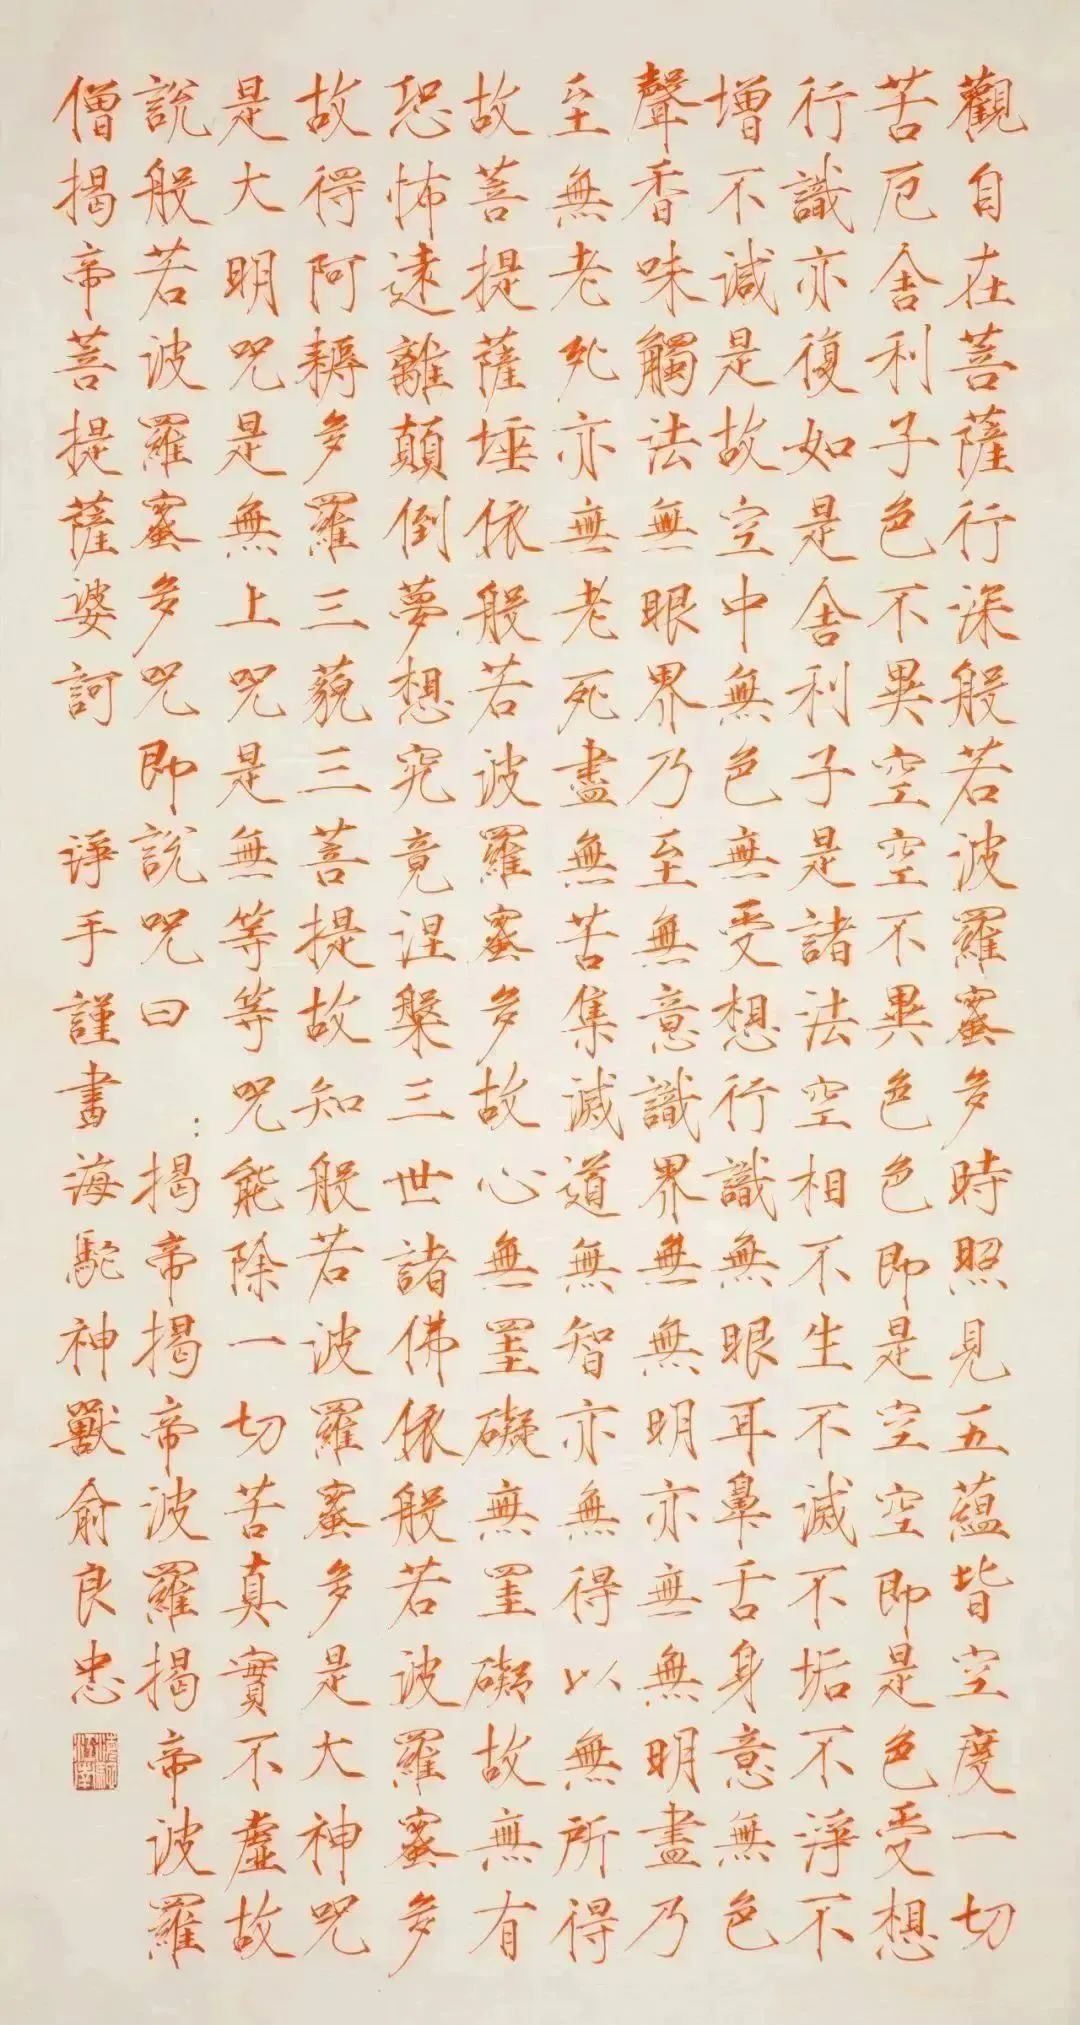 觀自在菩薩行深般若波羅蜜多時照見五蘊皆空度一切
苦厄舍利子色不異空空不異色色即是空空即是色受想
行識亦復如是舍利子是諸法空相不生不滅不垢不淨不
增不減是故空中無色無受想行識無眼耳鼻舌身意無色
聲香味觸法無眼界乃至無意識界無無明亦無無明盡乃
至無老死亦無老死盡無苦集滅道無智亦無得以無所得
故菩提薩埵依般若波羅蜜多故心無罣礙無罣礙故無有
恐怖遠離顛倒夢想究竟涅槃三世諸佛依般若波羅蜜多
故得阿耨多羅三藐三菩提故知般若波羅蜜多是大神咒
是大明咒是無上咒是無等等咒能除一切苦真實不虛故
說般若波羅蜜多咒即說咒曰：揭帝揭帝波羅揭帝波羅
僧揭帝菩提薩婆訶 淨手謹書海駝神獸俞良忠